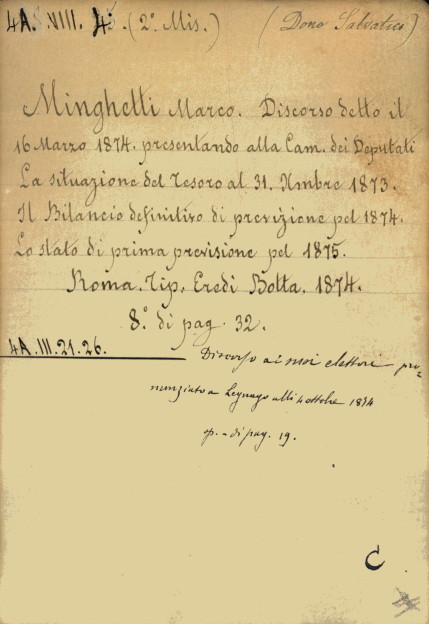 4A. VIII. 45 (2º Mis.) (Dono Salvatico)
Minghetti Marco. Discorso detto il
16 Marzo 1874. presentando alla Cam. dei Deputati
La situazione del Tesoro al 31. Xmbre 1873.
Il Bilancio definitivo di previzione pel 1874.
Lo stato di prima previsione pel 1875.
Roma. Tip. Eredi Botta. 1874.
8.º di pag. 32.
4A. III. 21. 26.
Discorso ai suoi elettori pro=
nunziato a Legnago alli 4 ottobre 1874
op. di pag. 19.
C